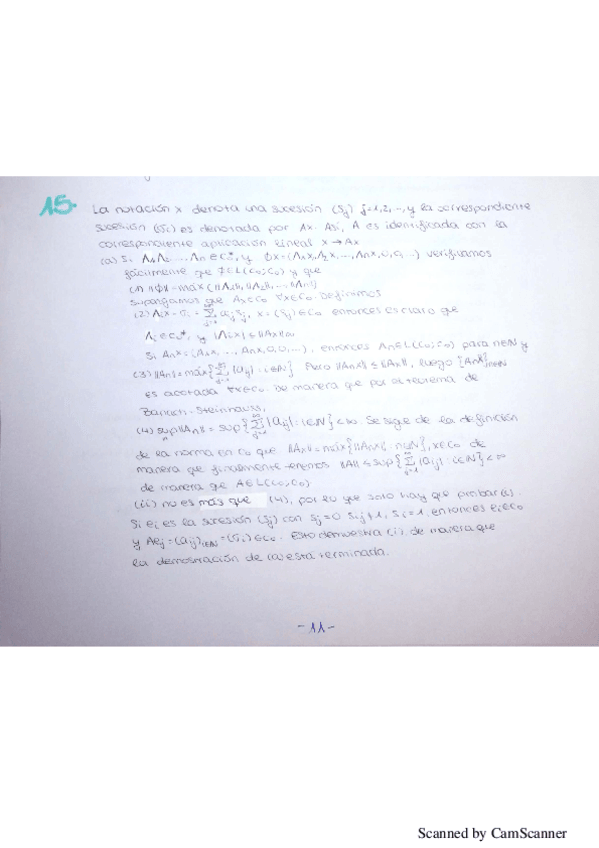 15.
La notación x denota una sucesión (Sj) j=1,2,..., y la correspondiente
sucesión (σi) es denotada por Λx. Así, A es identificada con la
correspondiente aplicación lineal x → Ax
(a) Si Λ1, Λ2, ..., Λn ∈ c0*, y Φx=(Λ1x, Λ2x, ..., Λnx, 0, 0, ...) verifiquamos
fácilmente que ∈ L(c0; c0) y que
(1) ||Φ|| = max{||Λ1||, ||Λ2||, ..., ||Λn||}
supongamos que Ax∈c0 ∀x∈c0. Definimos
(2) Λix = σi = ∑ aij Sj, x = (Sj) ∈ c0 entonces es claro que
Λi ∈ c0*, y |Λix| ≤ ||Ax||∞
Si Anx = (Λ1x, ..., Λnx, 0, 0, ...), entonces An∈L(c0; c0) para n∈N y
(3) ||An|| = máx{∑|aij| : i∈N}. Pero ||Anx|| ≤ ||Ax||, luego {Anx}n∈N
es acotada ∀x∈c0. De manera que por el teorema de
Banach-Steinhauss,
(4) sup||An|| = sup{∑|aij| : i∈N} < ∞. Se sige de la definición
de la norma en c0 que ||Ax|| = máx{||Anx|| : n∈N}, x∈c0 de
manera que finalmente tenemos ||A|| ≤ sup{∑|aij| : i∈N} < ∞
de manera que A∈L(c0; c0)
(ii) no es más que (4), por lo que solo hay que probar (i).
Si ei es la sucesión (Sj) con Sj=0 si j≠1, Si=1, entonces ei∈c0
y Aej = (aij)i∈N = (σi) ∈ c0. Esto demuestra (i), de manera que
la demostración de (a) está terminada.
-11-
Scanned by CamScanner